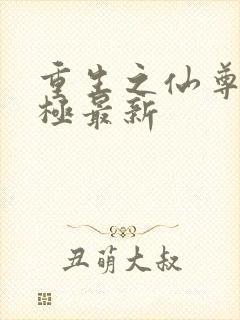 重生之仙尊
極最新
丑萌大叔